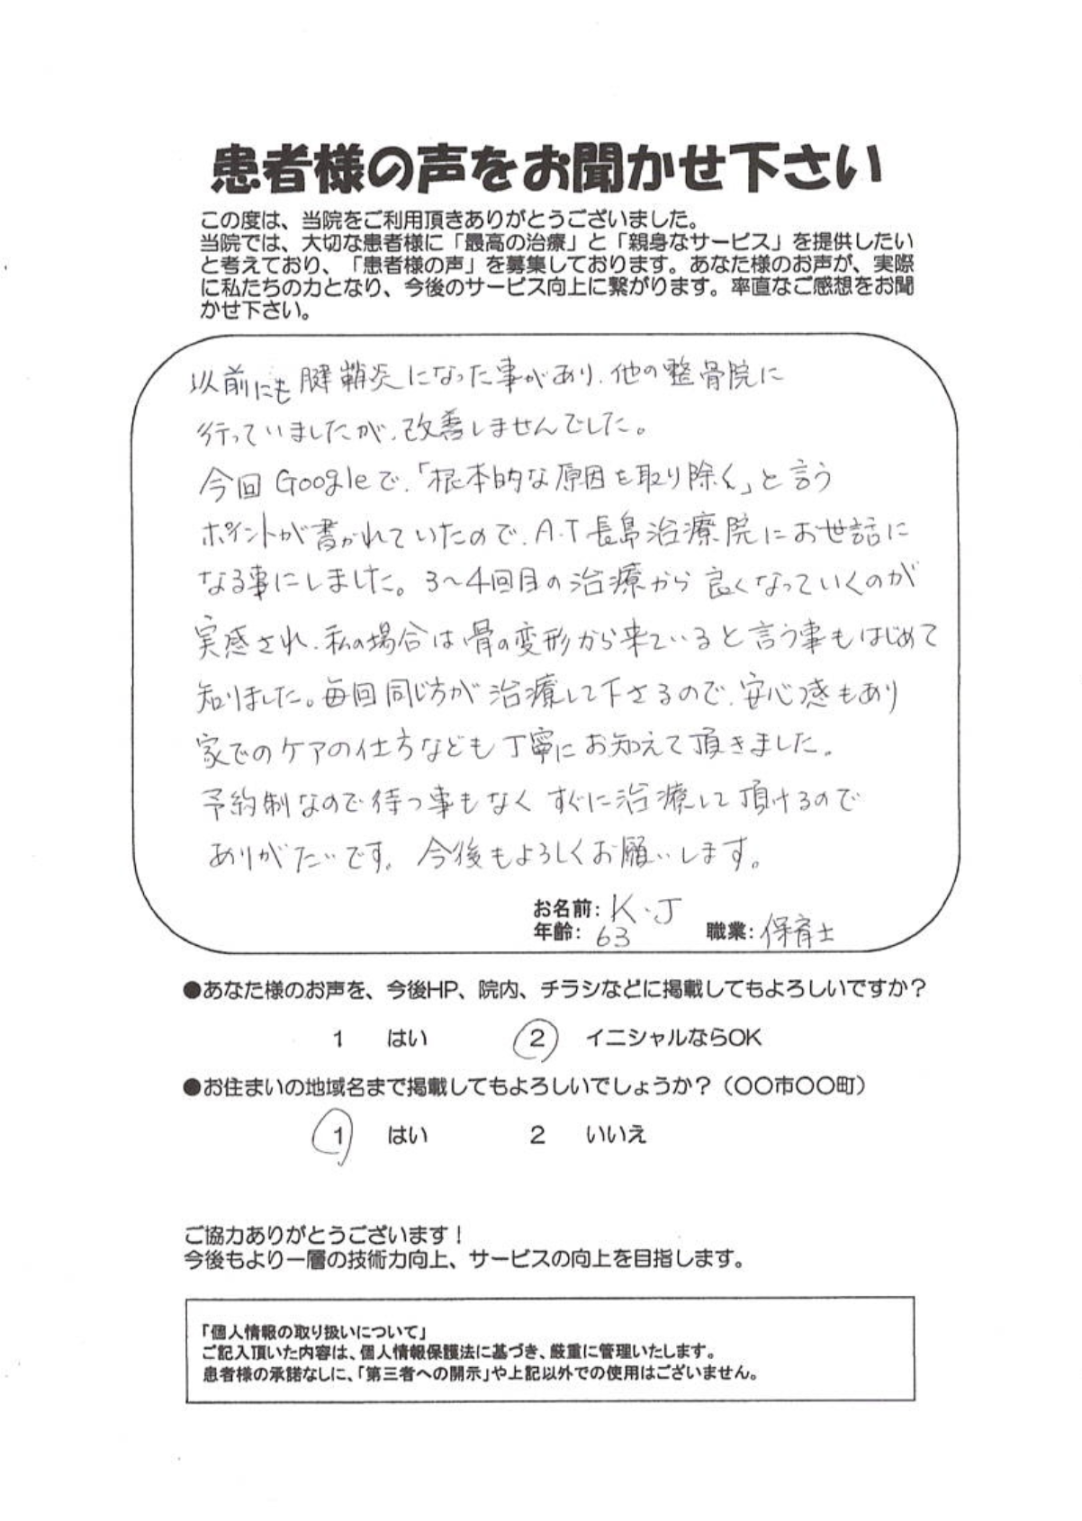 患者様の声をお聞かせ下さい
この度は、当院をご利用頂きありがとうございました。
当院では、大切な患者様に「最高の治療」と「親身なサービス」を提供したい
と考えており、「患者様の声」を募集しております。あなた様のお声が、実際
に私たちの力となり、今後のサービス向上に繋がります。率直なご感想をお聞
かせ下さい。
以前にも腱鞘炎になった事があり、他の整骨院に
行っていましたが、改善しませんでした。
今回Googleで、「根本的な原因を取り除く」と言う
ポイントが書かれていたので、A.T長島治療院にお世話に
なる事にしました。3〜4回目の治療から良くなっていくのが
実感され、私の場合は骨の変形から来ていると言う事もはじめて
知りました。毎回同じ方が治療して下さるので、安心感もあり
家でのケアの仕方なども丁寧にお知えて頂きました。
予約制なので待つ事もなくすぐに治療して頂けるので
ありがたいです。今後もよろしくお願いします。
お名前:K・J
年齢:63 職業:保育士
●あなた様のお声を、今後HP、院内、チラシなどに掲載してもよろしいですか？
1 はい 2 イニシャルならOK
●お住まいの地域名まで掲載してもよろしいでしょうか？（〇〇市〇〇町）
1 はい 2 いいえ
ご協力ありがとうございます！
今後もより一層の技術力向上、サービスの向上を目指します。
「個人情報の取り扱いについて」
ご記入頂いた内容は、個人情報保護法に基づき、厳重に管理いたします。
患者様の承諾なしに、「第三者への開示」や上記以外での使用はございません。